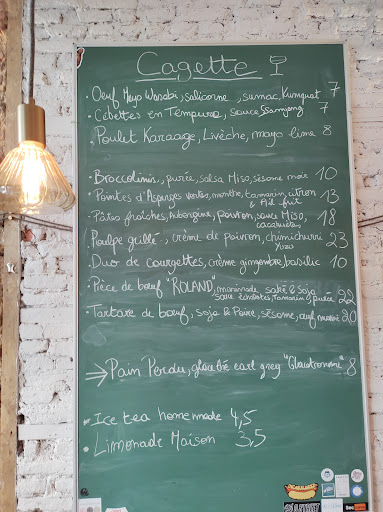 Cagette
• Oeuf Mayo Wasabi, salicorne, sumac, Kumquat 7
• Cébettes en Tempura, sauce Ssamjang 7
• Poulet Karaage, Livèche, mayo lime 8
• Broccolinis, purée, salsa Miso, sésame noir 10
• Pointes d'Asperges vertes, menthe, tamarin, citron 13
& Ail frit
• Pâtes fraîches, Aubergine, poivron, sauce Miso, 18
cacahuètes
• Poulpe grillé, crème de poivron, chimichurri 23
yuzu
• Duo de courgettes, crème gingembre, basilic 10
• Pièce de bœuf "ROLAND", marinade saké & soja
sauce échalotes, Tamarin & purée 22
• Tartare de bœuf, soja & Poire, sésame, œuf mariné 20
→ Pain Perdu, glace thé earl grey 8
• Ice tea homemade 4,5
• Limonade Maison 3,5